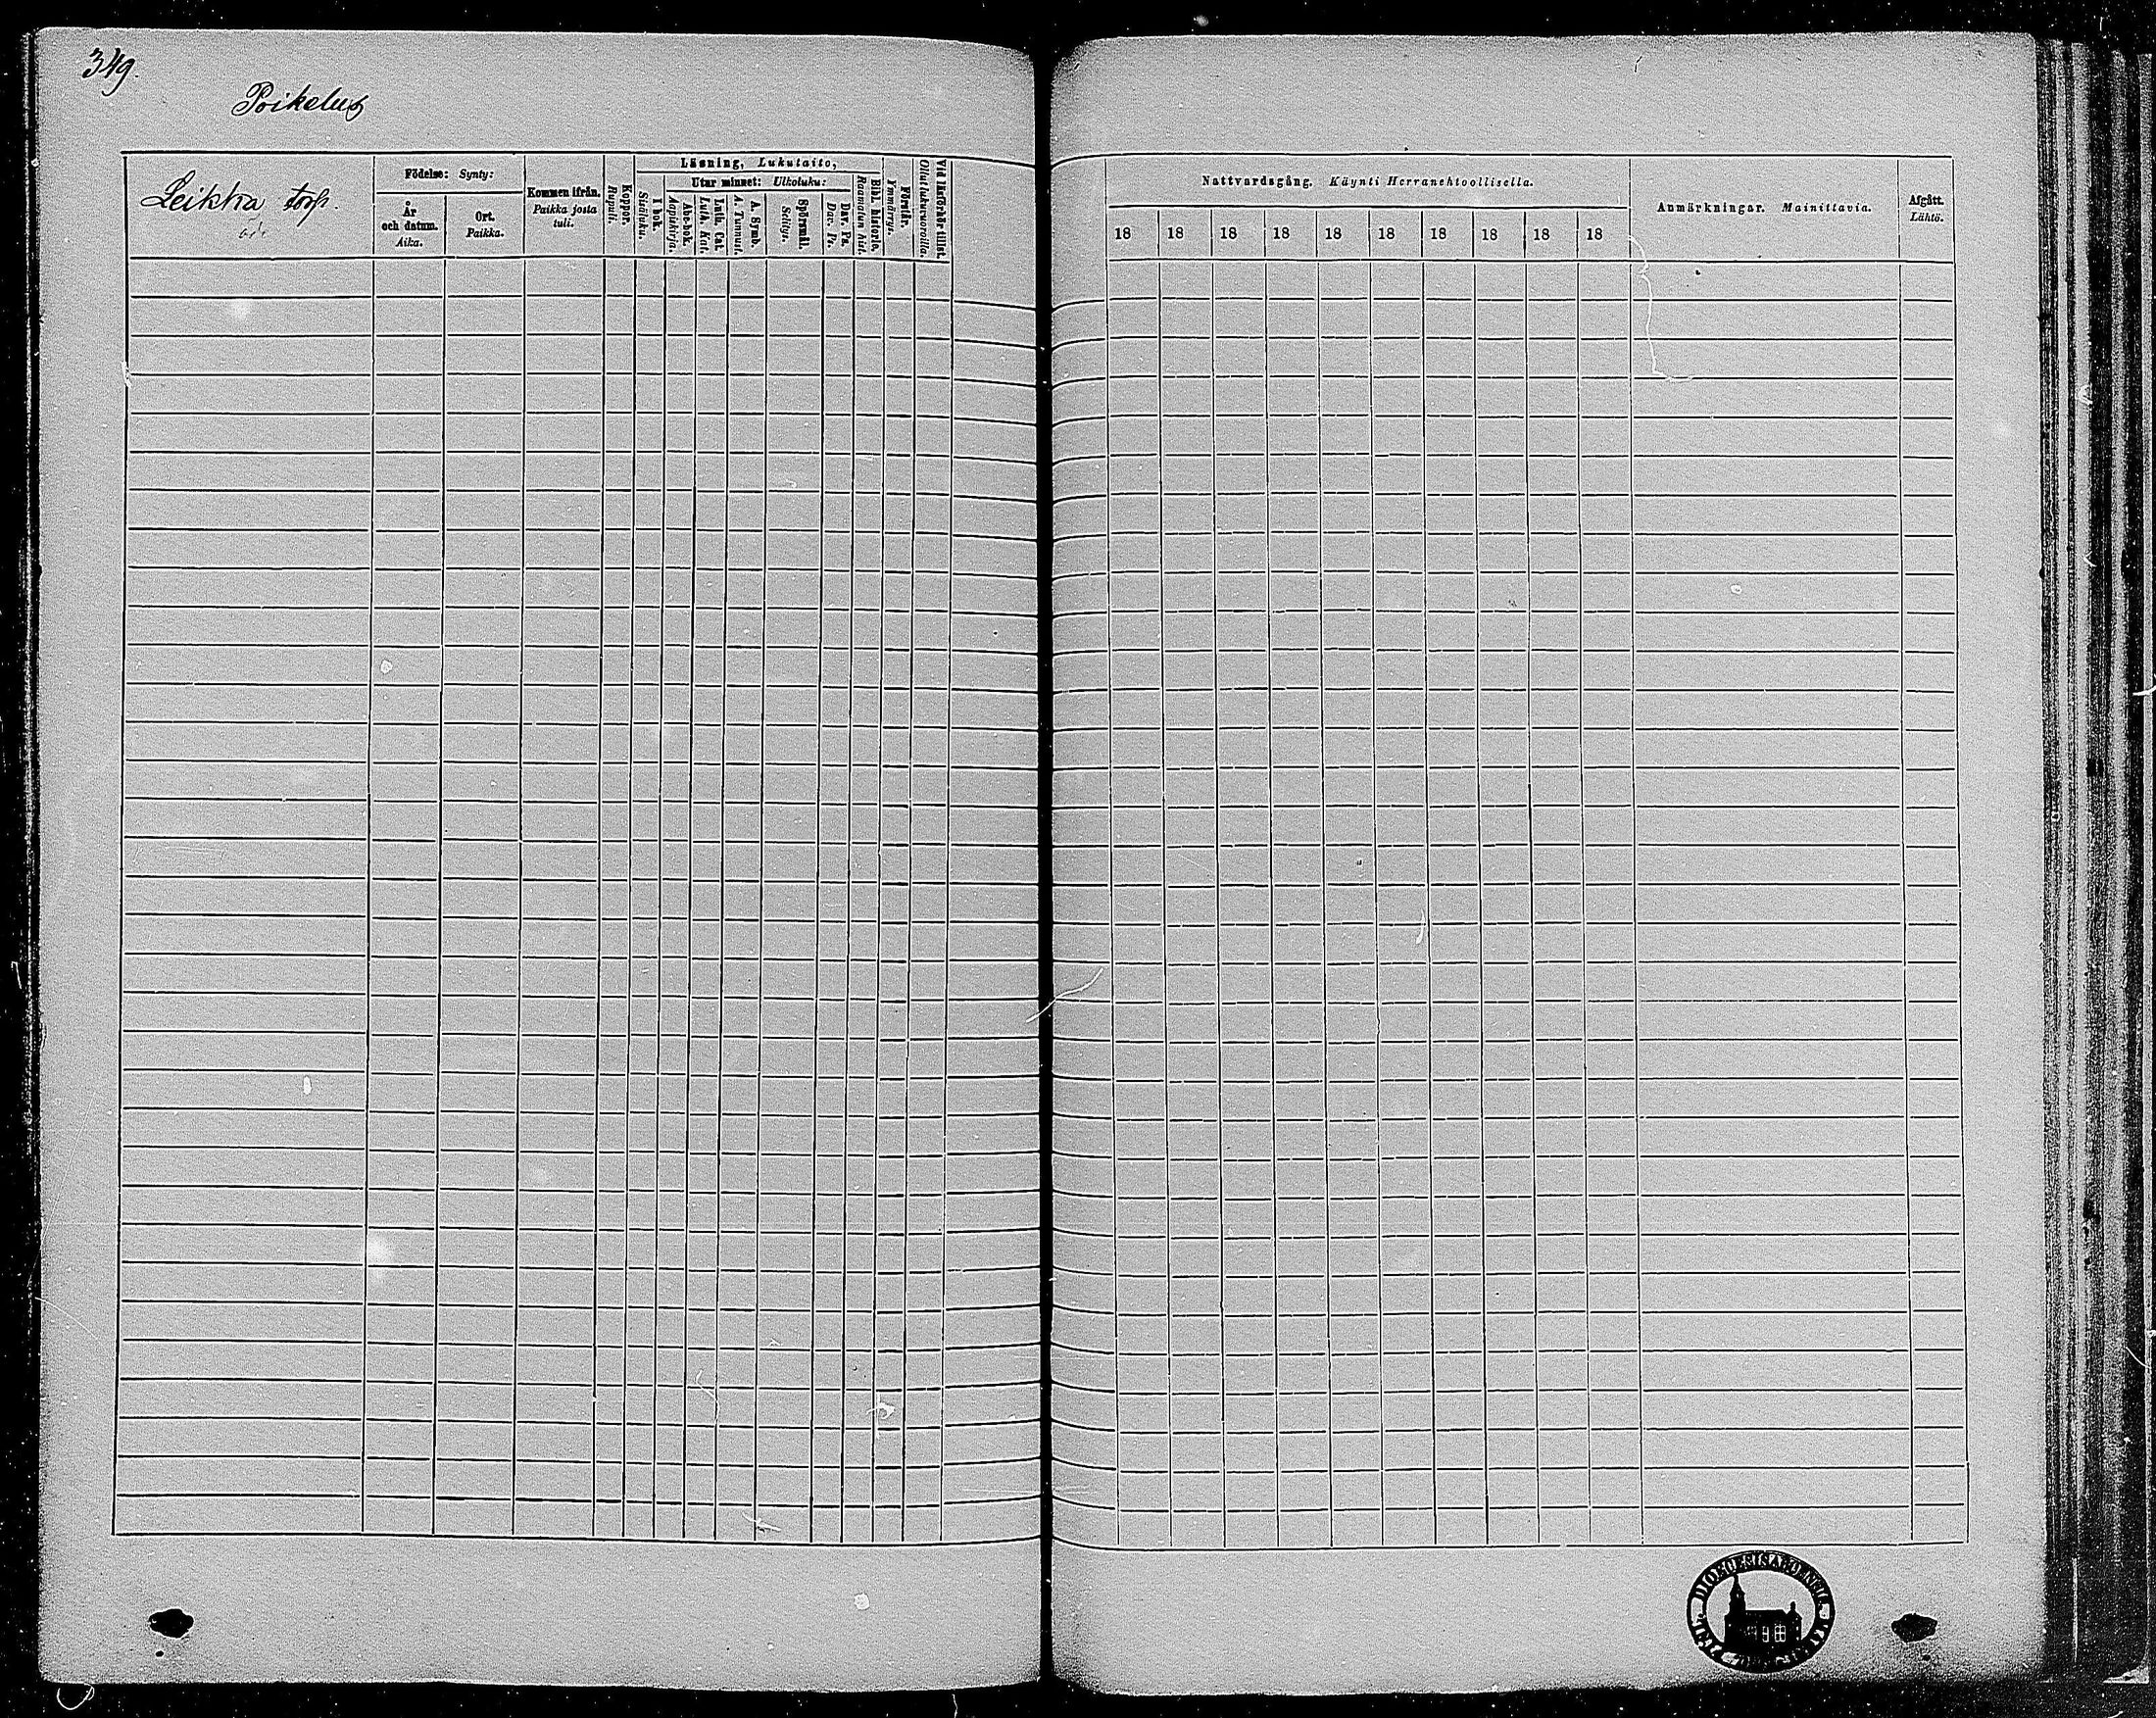 349.
Poikelus
Leikka torp.
Födelse: Synty:
År och datum. Aika.
Ort. Paikka.
Kommen ifrån. Paikka josta tuli.
Koppor. Rupuli.
Läsning, Lukutaito,
I bok. Sisäluku.
Utar minnet: Ulkoluku:
Abc-bok. Aapiskirja.
Luth. Cat. Luth. Kat.
A. Symb. A. Tunnust.
Spörsmål. Selitys.
Dav. Ps. Dav. Ps.
Bibl. historie. Raamatun hist.
Förstår. Ymmärrys.
Vid läsförhör tillst. Ollut lukuvuoroilla.
Nattvardsgång. Käynti Herranehtoollisella.
18 18 18 18 18 18 18 18 18 18
Anmärkningar. Mainittavia.
Afgått. Lähtö.